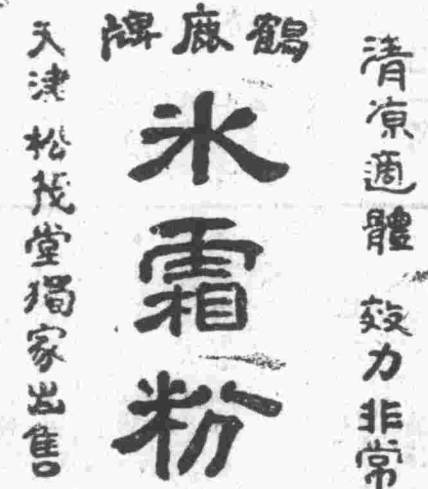 鶴鹿牌
清凉適體 效力非常
氷霜粉
天津松茂堂獨家出售